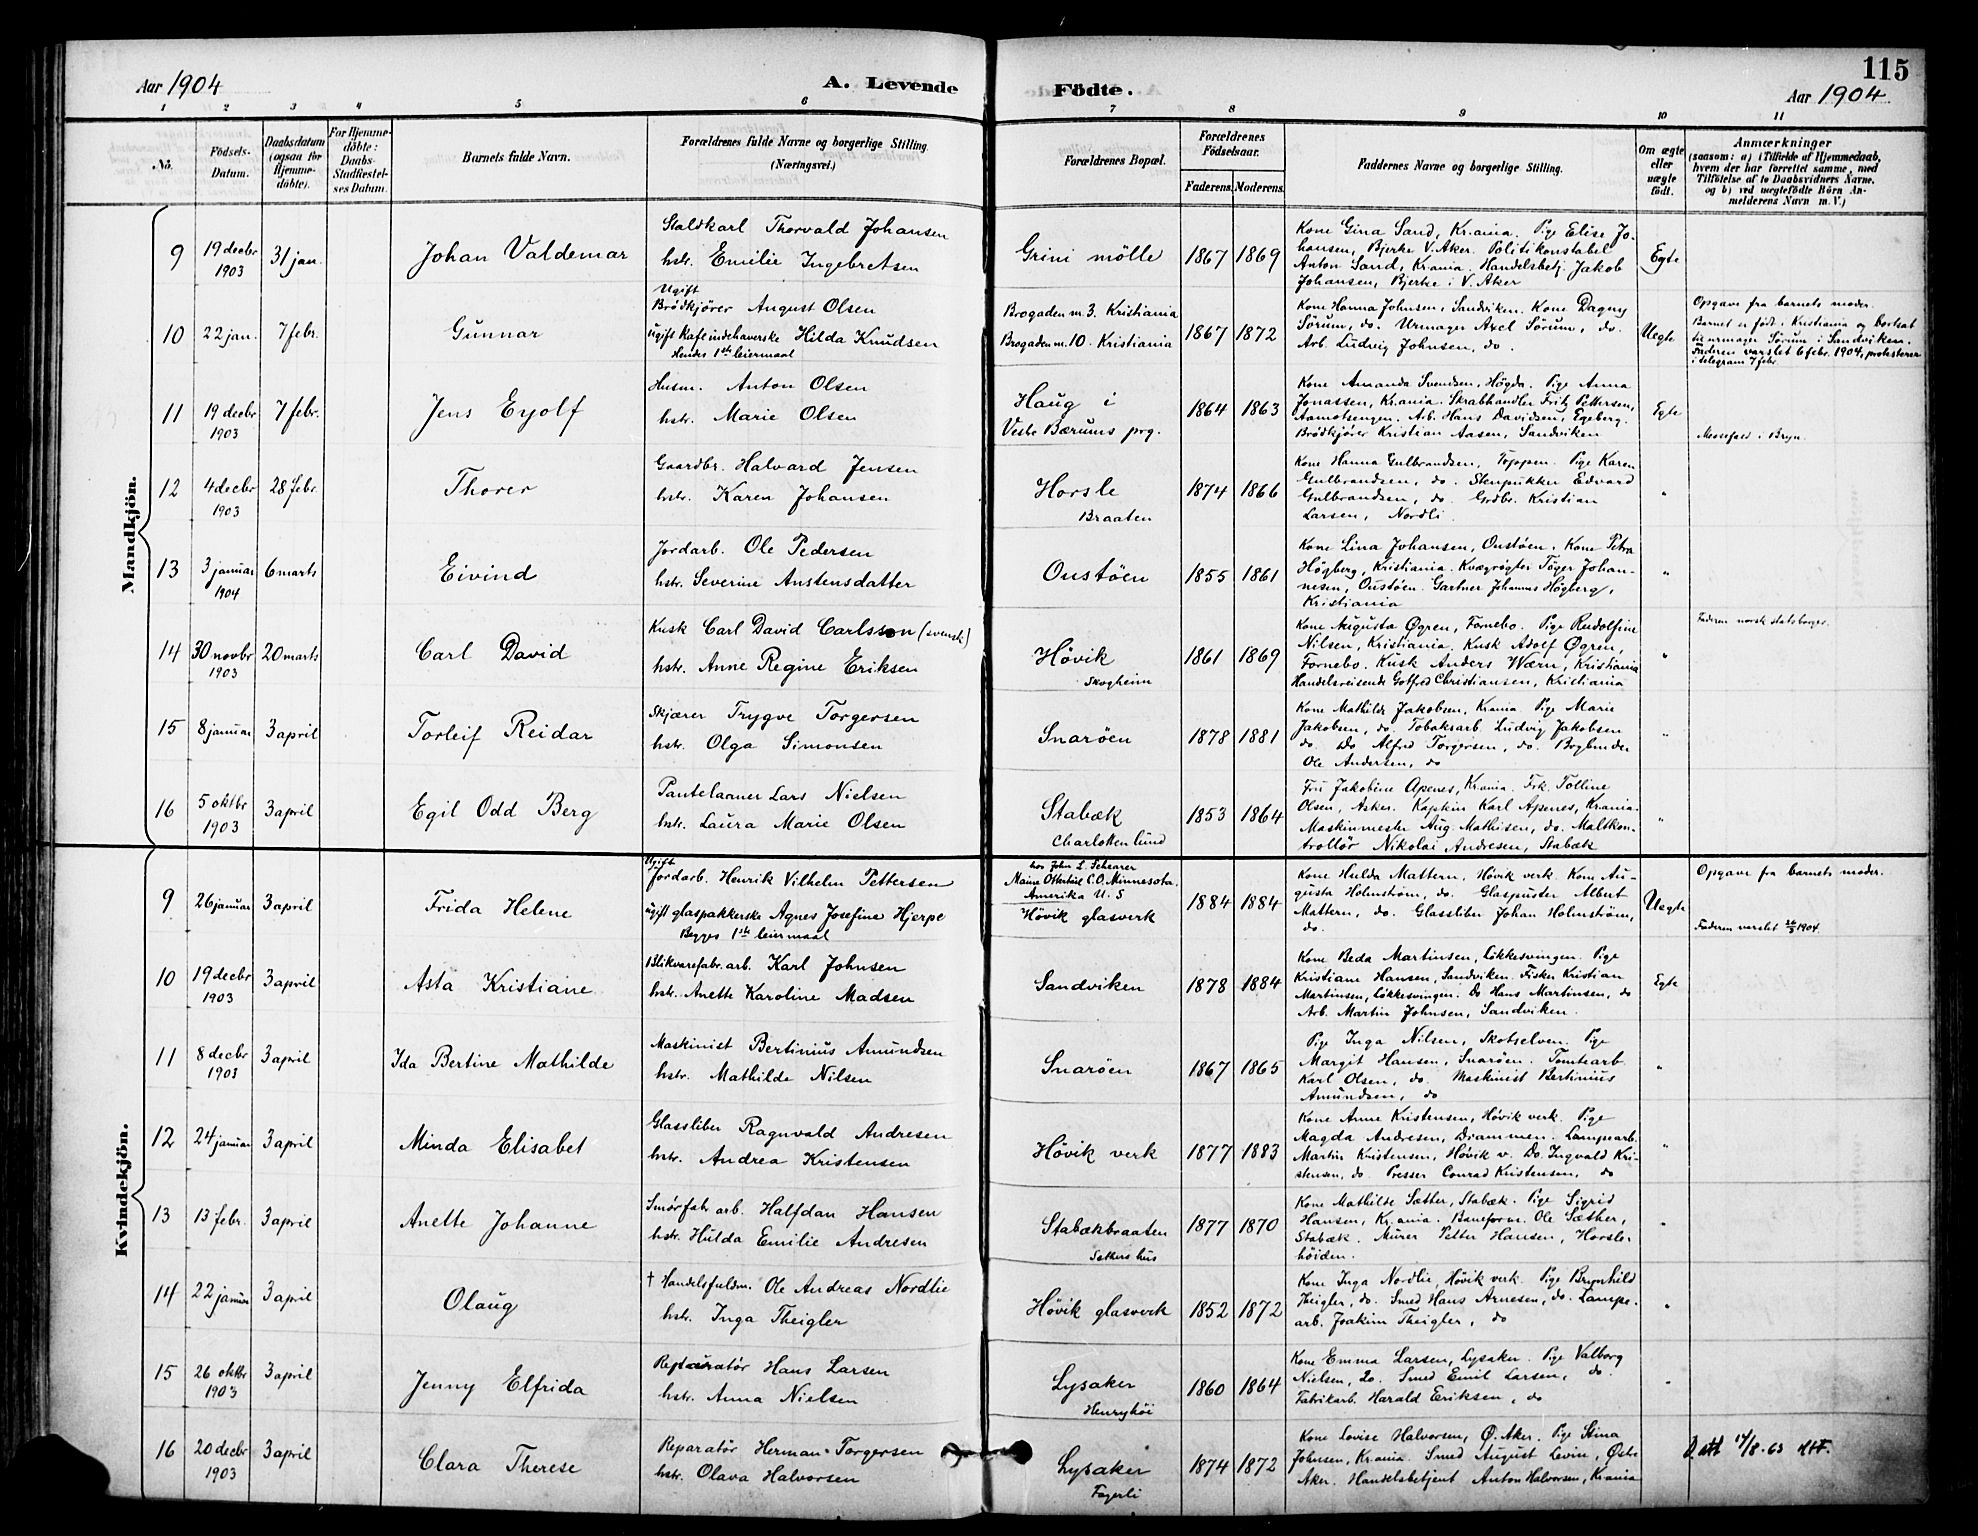 115
Aar 1904
A. Levende
Födte.
Aar 1904
1 2 3 4 5 6 7 8 9 10 11
No.
Födsels-Datum.
Daabsdatum (ogsaa for Hjemme-döbte).
For Hjemme-döbte: Daabs-Stadfæstel-ses Datum.
Barnets fulde Navn.
Forældrenes fulde Navne og borgerlige Stilling (Næringsvei.)
Forældrenes Bopæl.
Forældrenes Födselsaar.
Faderens. Moderens.
Faddernes Navne og borgerlige Stilling.
Om ægte eller uægte födt.
Anmærkninger
(saasom: a) i Tilfælde af Hjemmedaab, hvem der har forrettet samme, med Tilföielse af to Daabsvidners Navne, og b) ved uægtefödte Börn An-melderens Navn m. V.)
Mandkjön.
9 19 decbr 1903 31 jan. Johan Valdemar
Staldkarl Thorvald Johansen
hstr. Emilie Ingebretsen
Grini mölle 1867 1869
Kone Gina Sand, Kr.ania. Pige Elise Jo-
hansen, Bjerke V. Aker. Politikonstabel
Anton Sand, Kr.ania. Handelsbetj. Jakob
Johansen, Bjerke i V. Aker
Egte
10 22 jan. 7 febr. Gunnar
Ugift
Brödkjörer August Olsen
ugift Kafeindehaverske Hilda Knudsen
Hendes 1ste leiermaal
Brogaden nr. 3. Kristiania
Brogaden nr. 10. Kristiania
1867 1872
Kone Hanna Johnsen, Sandviken. Kone Dagny
Sörum, do. Urmager Axel Sörum, do.
Arb. Ludvig Johnsen, do.
Uegte
Opgave fra barnets moder.
Barnet er födt i Kristiania og bortsat
til urmager Sörum i Sandviken.
Faderen varslet 6 febr. 1904, protesterer
i telegram 7 febr.
11 19 decbr 1903 7 febr. Jens Eyolf
Husm. Anton Olsen
hstr. Marie Olsen
Haug i
Vestre Bærums prg.
1864 1863
Kone Amanda Svendsen, Högda. Pige Anna
Jonassen, Kr.ania. Skrabhandler Fritz Pettersen,
Aamotsengen. Arb. Hans Davidsen, Egeberg.
Brödkjörer Kristian Aasen, Sandviken
Egte
Messefald i Bryn.
12 4 decbr 1903 28 febr. Thorer
Gaardbr. Halvard Jensen
hstr. Karen Johansen
Horsle
Braaten
1874 1866
Kone Hanna Gulbrandsen, Toppen. Pige Karen
Gulbrandsen, do. Stenpukker Edvard
Gulbrandsen, do. Grdbr. Kristian
Larsen, Nordli.
"
13 3 januar 1904 6 marts Eivind
Jordarb. Ole Pedersen
hstr. Severine Anstensdatter
Oustöen 1855 1861
Kone Lina Johansen, Oustöen. Kone Petra
Högberg, Kristiania. Kvægrögter Töger Johan-
nesen, Oustöen. Gartner Johannes Högberg,
Kristiania
"
14 30 novbr 1903 20 marts Carl David
Kusk Carl David Carlsson (svensk)
hstr. Anne Regine Eriksen
Hövik
Skogheim
1861 1869
Kone Augusta Øgren, Fornebo. Pige Rudolfine
Nilsen, Kristiania. Kusk Adolf Øgren,
Fornebo. Kusk Anders Wærn, Kristiania
Handelsreisende Gotfred Christiansen, Kristiania
"
Faderen norsk statsborger.
15 8 januar 3 april Torleif Reidar
Skjærer Trygve Torgersen
hstr. Olga Simonsen
Snaröen 1878 1881
Kone Mathilde Jakobsen, Kr.ania. Pige Marie
Jakobsen, do. Tobaksarb. Ludvig Jakobsen
do. Do Alfred Torgersen, do. Bogbinder
Ole Andersen, do
"
16 5 oktbr 1903 3 april Egil Odd Berg
Pantelaaner Lars Nielsen
hstr. Laura Marie Olsen
Stabæk
Charlottenlund
1853 1864
Fru Jakobine Apenes, Kr.ania. Frk. Tolline
Olsen, Asker. Kaptein Karl Apenes, Kr.ania.
Maskinmester Aug. Mathisen, do. Maltkon-
trollör Nikolai Andresen, Stabæk
"
Kvindekjön.
9 26 januar 3 april Frida Helene
Ugift
Jordarb. Henrik Vilhelm Pettersen
ugift glaspakkerske Agnes Josefine Hjerpe
Begges 1ste leiermaal
hos John L. Schearer
Maine Ottertail C.O. Minnesota
Amerika U. S
Hövik glasverk
1884 1884
Kone Hulda Mattern, Hövik verk. Kone Au-
gusta Holmström, do. Glaspuster Albert
Mattern, do. Glassliber Johan Holmström,
do.
Uegte
Opgave fra barnets moder.
Faderen varslet 1904.
10 19 decbr 1903 3 april Asta Kristiane
Blikvarefabr. arb. Karl Johnsen
hstr. Anette Karoline Madsen
Sandviken 1878 1884
Kone Beda Martinsen, Lökkesvingen. Pige
Kristiane Hansen, Sandviken. Fisker Kristian
Martinsen, Lökkesvingen. Do Hans Martinsen, do
Arb. Martin Johnsen, Sandviken.
Egte
11 8 decbr 1903 3 april Ida Bertine Mathilde
Maskinist Bertinius Amundsen
hstr. Mathilde Nilsen
Snaröen 1867 1865
Pige Inga Nilsen, Skotselven. Pige
Margit Hansen, Snaröen. Tomtearb.
Karl Olsen, do. Maskinist Bertinius
Amundsen, do
"
12 24 januar 3 april Minda Elisabet
Glassliber Ragnvald Andresen
hstr. Andrea Kristensen
Hövik verk 1877 1883
Kone Anne Kristensen, Hövik verk. Pige
Magda Andresen, Drammen. Lampearb.
Martin Kristensen, Hövik v. Do. Ingvald Kri-
stensen, do Presser Conrad Kristensen, do
"
13 13 febr. 3 april Anette Johanne
Smörfabr. arb. Halfdan Hansen
hstr. Hulda Emilie Andresen
Stabækbraaten
Sæthers hus
1877 1870
Kone Mathilde Sæther, Stabæk. Pige Sigrid
Hansen, Kr.ania. Baneform. Ole Sæther,
Stabæk. Murer Petter Hansen, Horsle-
höiden.
"
14 22 januar 3 april Olaug
† Handelsfuldm. Ole Andreas Nordlie
hstr. Inga Theigler
Hövik glasverk 1852 1872
Kone Inga Nordlie, Hövik verk. Pige Brynhild
Theigler, do. Smed Hans Arnesen, do. Lampe-
arb. Joakim Theigler, do
"
15 26 oktbr 1903 3 april Jenny Elfrida
Reparatör Hans Larsen
hstr. Anna Nielsen
Lysaker
Henryhöi
1860 1864
Kone Emma Larsen, Lysaker. Pige Valborg
Nielsen, do. Smed Emil Larsen, do.
Fabrikarb. Harald Eriksen, do
"
16 20 decbr 1903 3 april Clara Therese
Reparatör Herman Torgersen
hstr. Olava Halvorsen
Lysaker
Fagerli
1874 1872
Kone Lovise Halvorsen, Ø. Aker. Pige Stina
Johnsen, Kr.ania. Smed August Levin, Östre
Aker. Handelsbetjent Anton Halvorsen, Kr.ania